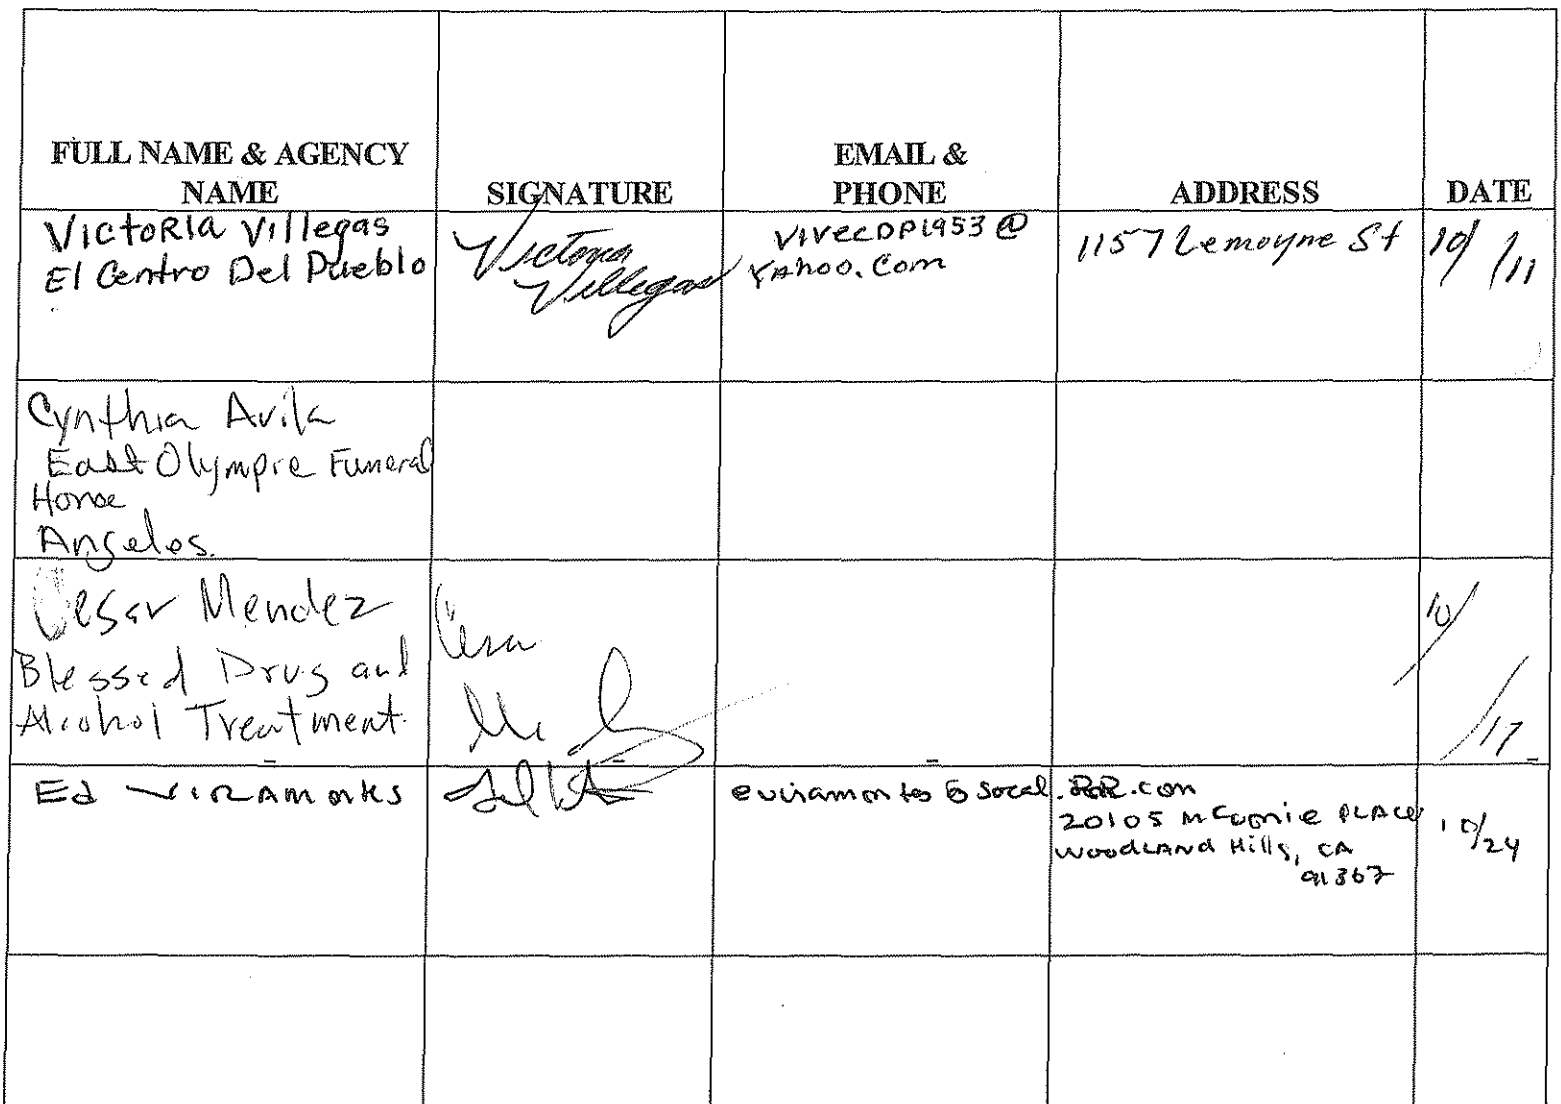 FULL NAME & AGENCY
NAME
SIGNATURE
EMAIL &
PHONE
ADDRESS
DATE
Victoria Villegas
El Centro Del Pueblo
Victoria
Villegas
vivecDP1953@
Yahoo.com
1157 Lemoyne St
10/11
Cynthia Avila
East Olympic Funeral
Home
Angeles.
Cesar Mendez
Blessed Drug and
Alcohol Treatment
10/17
Ed Viramontes
eviramontes@socal.RR.com
20105 PLACE
WOODLAND Hills, CA
91367
10/24